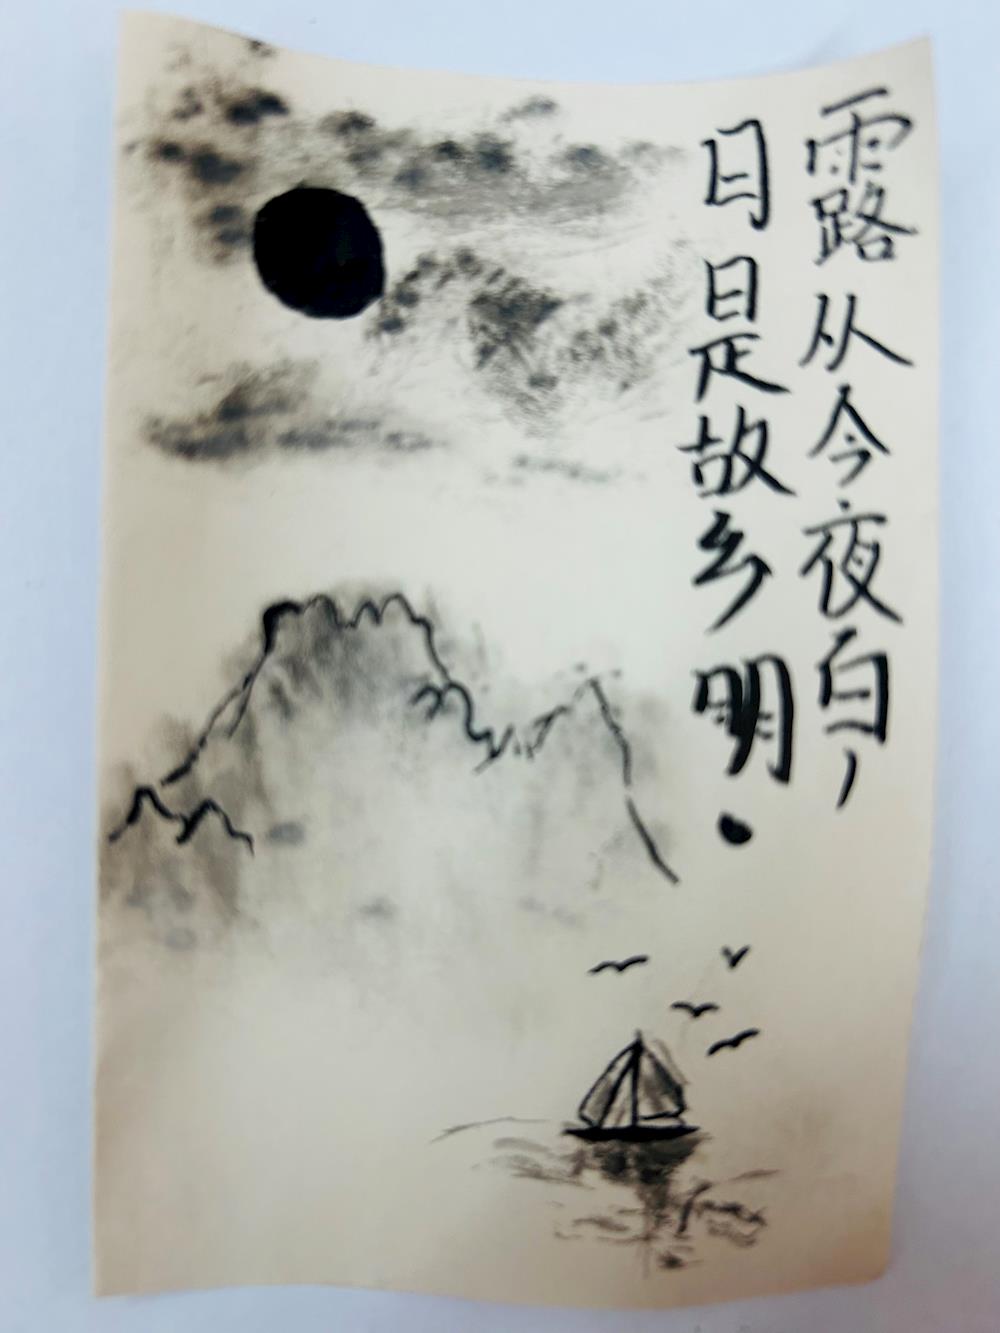 露从今夜白，
月是故乡明。